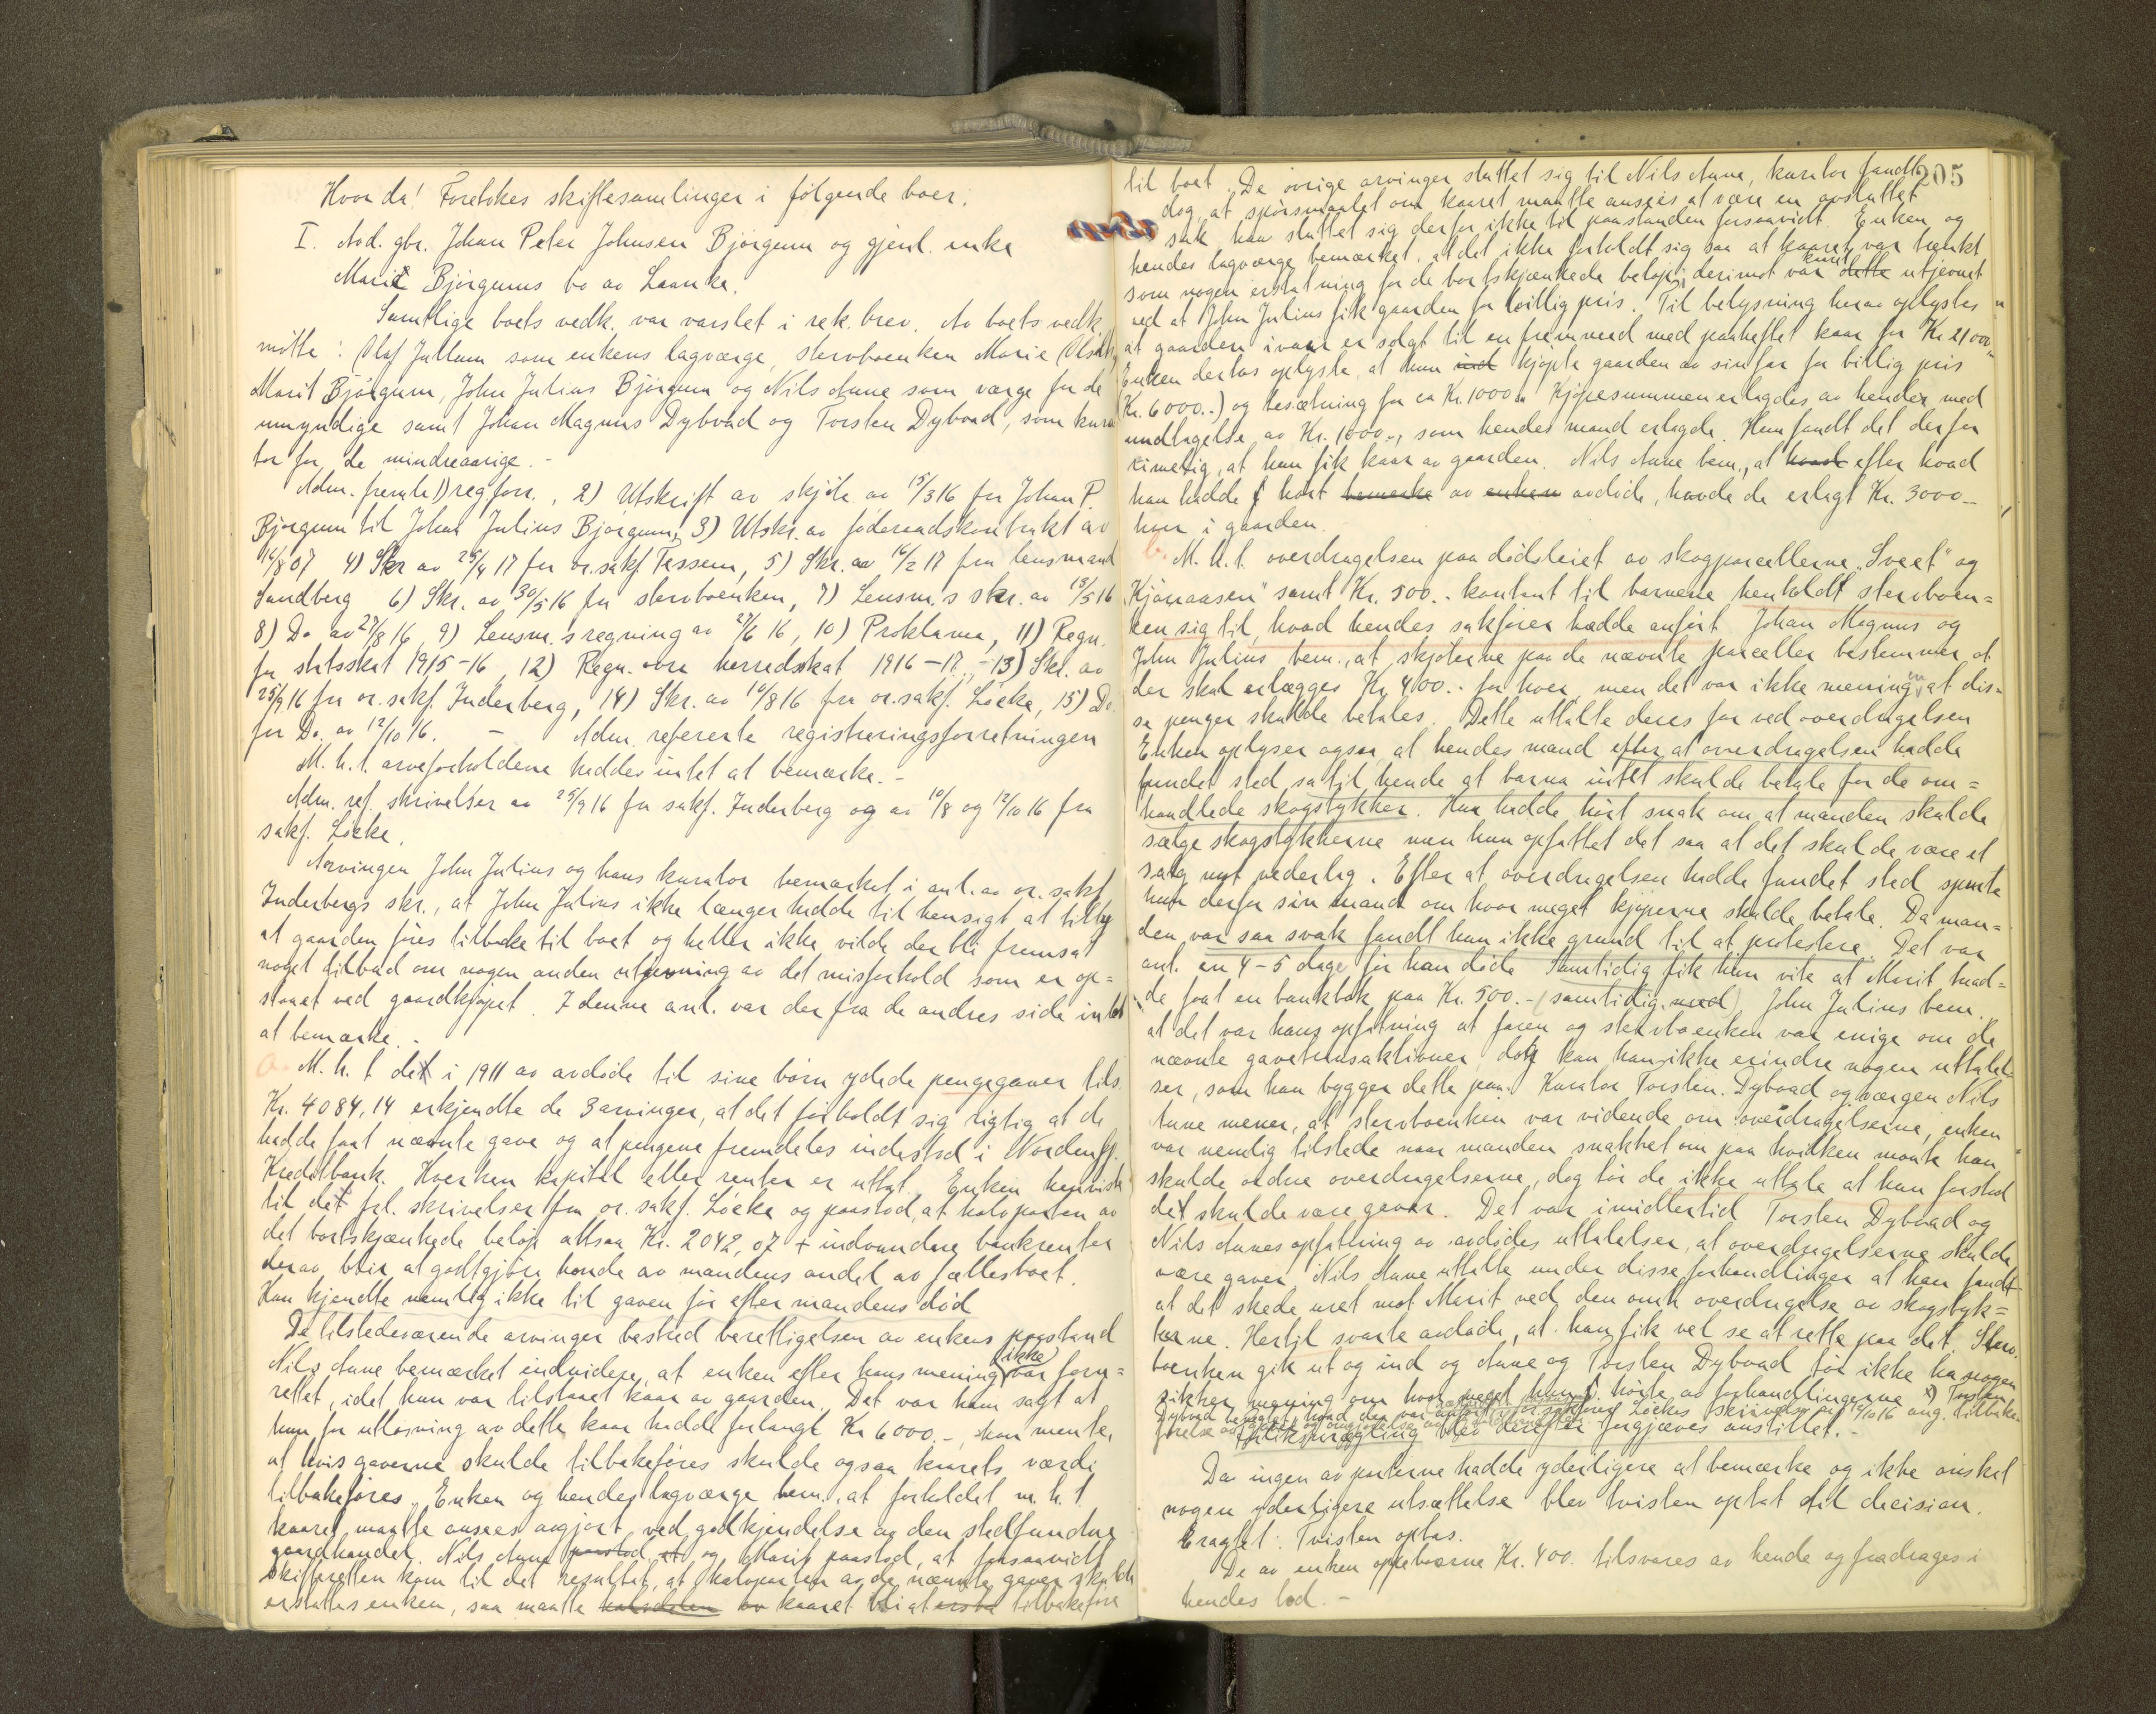 Hvor da! Foretokes skiftesamlinger i følgende boer:
I. Avd. gbr. Johan Peter Johnsen Bjørgum og gjenl. enke
Marie Bjørgums bo av Laanke.
Samtlige boets vedk. var varslet i rek. brev. Av boets vedk.
møtte: Olaf Jullum som enkens lagværge, stervboenken Marie Olsdtr,
Marit Bjørgum, John Julius Bjørgum og Nils Aune som værge for de
umyndige samt Johan Magnus Dybvad og Torsten Dybvad, som kura
tor for de mindreaarige. -
Adm. fremla 1) reg.forr., 2) Utskrift av skjøte av 15/3 16 fra Johan P.
Bjørgum til Johan Julius Bjørgum, 3) Utskr. av føderaadskontrakt av
16/8 07 4) Skr av 25/4 17 fra or.sakf. Tessem, 5) Skr. av 16/2 17 fra lensmand
Sandberg 6) Skr. av 30/5 16 fra stervboenken, 7) Lensm.s skr. av 15/5 16
8) Do av 27/8 16, 9) Lensm.s regning av 27/6 16, 10) Proklama, 11) Regn.
for statsskat 1915-16, 12) Regn. over herredskat 1916-17, - 13) Skr. av
25/9 16 fra or. sakf. Inderberg, 14) Skr. av 10/8 16 fra or.sakf. Løcke, 15) Do
fra Do. av 12/10 16. - Adm. refererte registreringsforretningen
M. h. t. arveforholdene haddes intet at bemærke. -
Adm. ref. skrivelser av 25/9 16 fra sakf. Inderberg og av 10/8 og 12/10 16 fra
sakf. Løcke.
Arvingen John Julius og hans kurator bemærket i anl. av or. sakf.
Inderbergs skr., at John Julius ikke længer hadde til hensigt at tilby
at gaarden føres tilbake til boet og heller ikke vilde der bli fremsat
noget tilbud om nogen anden utjevning av det misforhold som er op=
staaet ved gaardkjøpet. I denne anl. var der fra de andres side intet
at bemærke. -
a. M. h. t. det i 1911 av avdøde til sine børn ydede pengegaver tils.
Kr. 4084,14 erkjendte de 3 arvinger, at det forholdt sig rigtig at de
hadde faat nævnte gave og at pengene fremdeles indestod i Nordenfj.
Kreditbank. Hverken kapital eller renter er uttat. Enken henviste
til det frl. skrivelser fra or. sakf. Løcke og paastod, at halvparten av
det bortskjænkede beløp altsaa Kr. 2042,07 + indvundne bankrenter
derav, blir at godtgjøre hende av mandens andel av fællesboet.
Hun kjendte nemlig ikke til gaven før efter mandens død
De tilstedeværende arvinger bestred berettigelsen av enkens paastand
Nils Aune bemærket endvidere, at enken efter hans mening ikke var foru=
rettet, idet hun var tilstaaet kaar av gaarden. Det var ham sagt at
hun for utløsning av dette kaar hadde forlangt Kr 6000.-, han mente,
at hvis gaverne skulde tilbakeføres skulde ogsaa kaarets værdi
tilbakeføres. Enken og hendes lagværge bem., at forholdet m. h. t.
kaaret maatte ansees avgjort ved godkjendelse av den stedfundne
gaardhandel. Nils Aune paastod at og Marit paastod, at forsaavidt
skifteretten kom til det resultat, at halvparten av de nævnte gaver skulde
erstattes enken, saa maatte halvdelen av kaaret bli at ersta tilbakeføre
205
til boet. De øvrige arvinger sluttet sig til Nils Aune, kurator fandt
dog, at spørsmaalet om kaaret maatte ansees at være en avsluttet
sak han sluttet sig derfor ikke til paastanden forsaavidt Enken og
hendes lagværge bemærket, at det ikke forholdt sig saa at kaaret var tænkt
som nogen erstatning for de bortskjænkede beløp, derimot var kaaret dette utjevnet
ved at John Julius fik gaarden for billig pris. Til belysning herav oplystes
at gaarden ivaar er solgt til en fremmed med paaheftet kaar for Kr. 21000.-
Enken dertos oplyste, at hun ind kjøpte gaarden av sin far for billig pris
(Kr. 6000.-) og besætning for ca Kr. 1000.- Kjøpesummen erlagdes av hender med
undtagelse av Kr. 1000.-, som hendes mand erlagde. Hun fandt det derfor
rimelig, at hun fik kaar av gaarden. Nils Aune bem., at hvad efter hvad
han hadde hørt bemerke av enken avdøde, havde de erlagt Kr. 3000.-
hver i gaarden.
b. M. h. t. overdragelsen paa dødsleiet av skogparcellerne "Sveet" og
"Kjønaasen" samt Kr. 500.- kontant til barnene henholdt stervboen=
ken sig til, hvad hendes sakfører hadde anført. Johan Magnus og
John Julius bem., at skjøterne paa de nævnte parceller bestemmer at
der skal erlægges Kr. 400.- for hver, men det var ikke meningen at dis=
se penger skulde betales. Dette uttalte deres far ved overdragelsen
Enken oplyser ogsaa, at hendes mand efter at overdragelsen hadde
fundet sted sa til hende at barna intet skulde betale for de om=
handlede skogstykker. Hun hadde hørt snak om at manden skulde
sælge skogstykkerne men hun opfattet det saa at det skulde være et
salg mot vederlag. Efter at overdragelsen hadde fundet sted spurte
hun derfor sin mand om hvor meget kjøperne skulde betale. Da man=
den var saa svak fandt hun ikke grund til at protestere. Det var
ant. en 4-5 dage før han døde Samtidig fik hun vite at Marit had=
de faat en bankbok paa Kr. 500.- (samtidig med) John Julius bem.
at det var hans opfatning at faren og stervboenken var enige om de
nævnte gavetransaktioner, dog kan han ikke erindre nogen uttalel=
ser, som han bygger dette paa. Kurator Torsten Dybvad og værgen Nils
Aune mener, at stervboenken var vidende om overdragelserne, enken
var nemlig tilstede naar manden snakket om paa hvilken maate han
skulde ordne overdragelserne, dog tør de ikke uttale at hun forstod
det skulde være gaver. Det var imidlertid Torsten Dybvad og
Nils Aunes opfatning av avdødes uttalelser, at overdragelserne skulde
være gaver. Nils Aune uttalte under disse forhandlinger at han fandt
at det skede uret mot Marit ved den omh. overdragelse av skogstyk=
kerne. Hertil svarte avdøde, at han fik vel se at rette paa det. Sterv=
boenken gik ut og ind og Aune og Torsten Dybvad tør ikke ha nogen
sikker mening om hvor meget hun hørte av forhandlingerne x) Torsten
Dybvad benegtet, hvad der var anført i or.sakfører Løckes skrivelse av 12/10 16 ang. tilbake
førelse
Forliksmægling blev derefter forgjæves anstillet. -
Da ingen av parterne hadde yderligere at bemærke og ikke ønsket
nogen yderligere utsættelse blev tvisten optat til decision.
Eragtet: Tvisten optas.
De av enken oppebaarne Kr. 400. tilsvares av hende og fradrages i
hendes lod. -